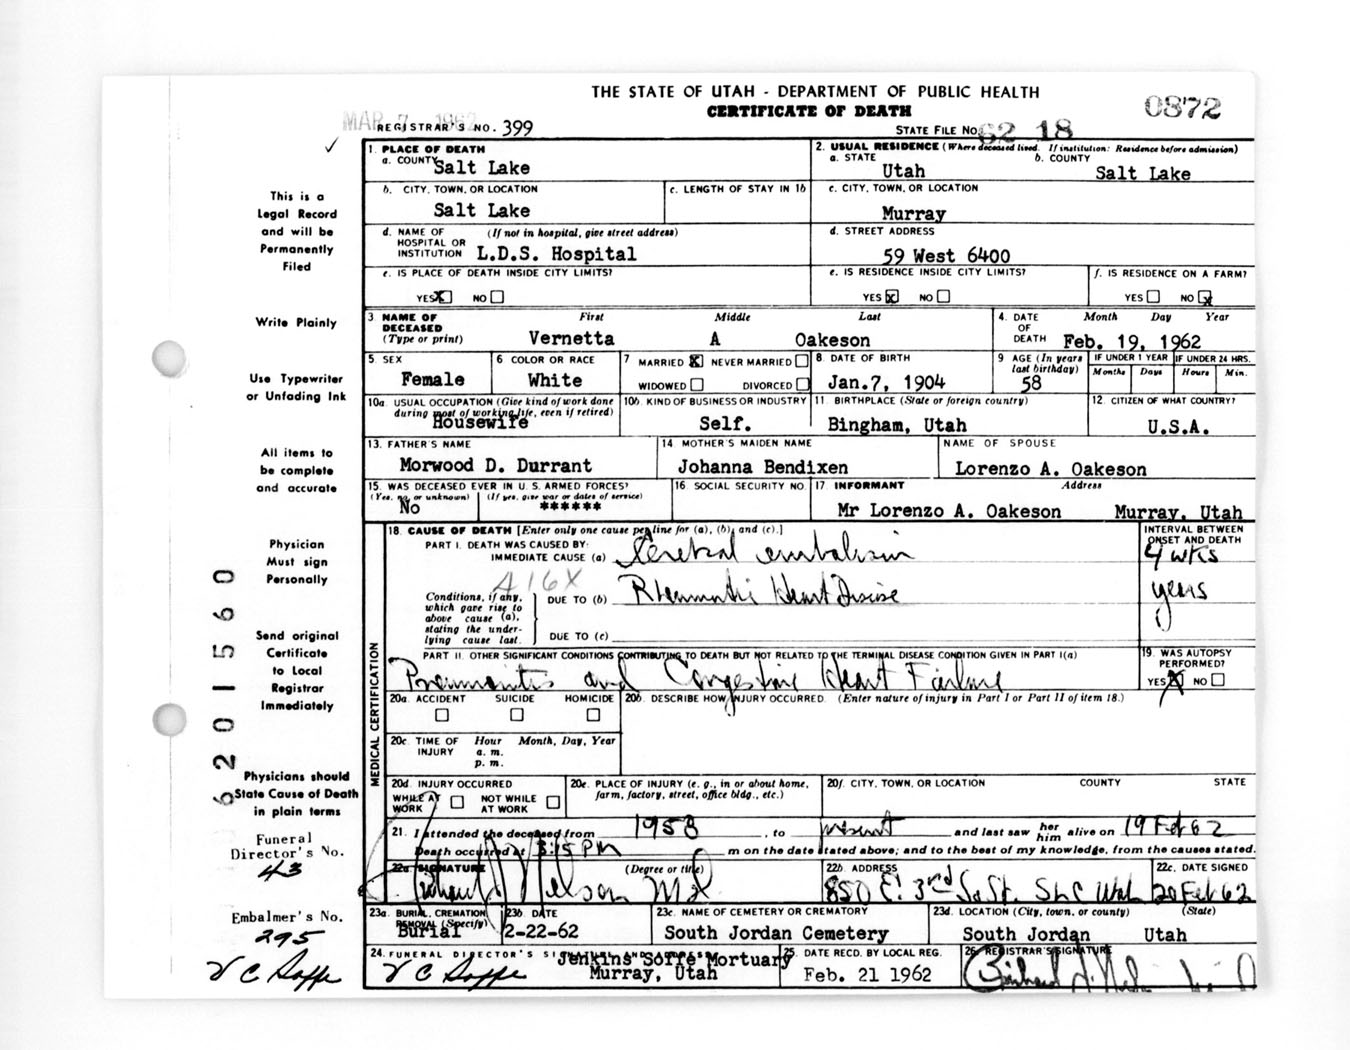 THE STATE OF UTAH - DEPARTMENT OF PUBLIC HEALTH
CERTIFICATE OF DEATH
0872
MAR 7 1962
REGISTRAR'S NO. 399
STATE FILE NO. 62 18
✓
This is a
Legal Record
and will be
Permanently
Filed
Write Plainly
Use Typewriter
or Unfading Ink
All items to
be complete
and accurate
Physician
Must sign
Personally
Send original
Certificate
to Local
Registrar
Immediately
Physicians should
State Cause of Death
in plain terms
Funeral
Director's No.
43
Embalmer's No.
295
V C Soffe
6201560
1. PLACE OF DEATH
a. COUNTY Salt Lake
2. USUAL RESIDENCE (Where deceased lived. If institution: Residence before admission)
a. STATE Utah
b. COUNTY Salt Lake
b. CITY, TOWN, OR LOCATION
Salt Lake
c. LENGTH OF STAY IN 1b
c. CITY, TOWN, OR LOCATION
Murray
d. NAME OF HOSPITAL OR INSTITUTION (If not in hospital, give street address)
L.D.S. Hospital
d. STREET ADDRESS
59 West 6400
e. IS PLACE OF DEATH INSIDE CITY LIMITS?
YES X NO
e. IS RESIDENCE INSIDE CITY LIMITS?
YES X NO
f. IS RESIDENCE ON A FARM?
YES NO X
3. NAME OF DECEASED (Type or print)
First Middle Last
Vernetta A Oakeson
4. DATE OF DEATH Month Day Year
Feb. 19, 1962
5. SEX
Female
6 COLOR OR RACE
White
7 MARRIED X NEVER MARRIED
WIDOWED DIVORCED
8. DATE OF BIRTH
Jan.7, 1904
9 AGE (In years last birthday)
58
IF UNDER 1 YEAR
Months Days
IF UNDER 24 HRS.
Hours Min.
10a. USUAL OCCUPATION (Give kind of work done during most of working life, even if retired)
Housewife
10b. KIND OF BUSINESS OR INDUSTRY
Self.
11. BIRTHPLACE (State or foreign country)
Bingham, Utah
12. CITIZEN OF WHAT COUNTRY?
U.S.A.
13. FATHER'S NAME
Morwood D. Durrant
14 MOTHER'S MAIDEN NAME
Johanna Bendixen
NAME OF SPOUSE
Lorenzo A. Oakeson
15. WAS DECEASED EVER IN U. S. ARMED FORCES?
(Yes, no, or unknown) (If yes, give war or dates of service)
No ******
16 SOCIAL SECURITY NO.
17 INFORMANT Address
Mr Lorenzo A. Oakeson Murray, Utah
MEDICAL CERTIFICATION
18. CAUSE OF DEATH [Enter only one cause per line for (a), (b), and (c).]
INTERVAL BETWEEN ONSET AND DEATH
PART I. DEATH WAS CAUSED BY:
IMMEDIATE CAUSE (a) Cerebral embolism 4 wks
416X
Conditions, if any, which gave rise to above cause (a), stating the underlying cause last.
DUE TO (b) Rheumatic Heart Disease years
DUE TO (c)
PART II. OTHER SIGNIFICANT CONDITIONS CONTRIBUTING TO DEATH BUT NOT RELATED TO THE TERMINAL DISEASE CONDITION GIVEN IN PART I(a)
Pneumonitis and Congestive Heart Failure
19. WAS AUTOPSY PERFORMED?
YES X NO
20a. ACCIDENT SUICIDE HOMICIDE
20b. DESCRIBE HOW INJURY OCCURRED. (Enter nature of injury in Part I or Part II of item 18.)
20c. TIME OF INJURY
Hour Month, Day, Year
a. m.
p. m.
20d. INJURY OCCURRED
WHILE AT WORK NOT WHILE AT WORK
20e. PLACE OF INJURY (e. g., in or about home, farm, factory, street, office bldg., etc.)
20f. CITY, TOWN, OR LOCATION COUNTY STATE
21. I attended the deceased from 1958, to present and last saw her him alive on 19 Feb 62
Death occurred at 3:15 PM m on the date stated above; and to the best of my knowledge, from the causes stated.
22a. SIGNATURE (Degree or title)
Richard J. Nelson MD
22b. ADDRESS
850 E. 3rd So St. SLC Utah
22c. DATE SIGNED
20 Feb 62
23a. BURIAL, CREMATION REMOVAL (Specify)
Burial
23b. DATE
2-22-62
23c. NAME OF CEMETERY OR CREMATORY
South Jordan Cemetery
23d. LOCATION (City, town, or county) (State)
South Jordan Utah
24. FUNERAL DIRECTOR'S SIGNATURE
V C Soffe
Jenkins Soffe Mortuary
Murray, Utah
25. DATE RECD. BY LOCAL REG.
Feb. 21 1962
26 REGISTRAR'S SIGNATURE